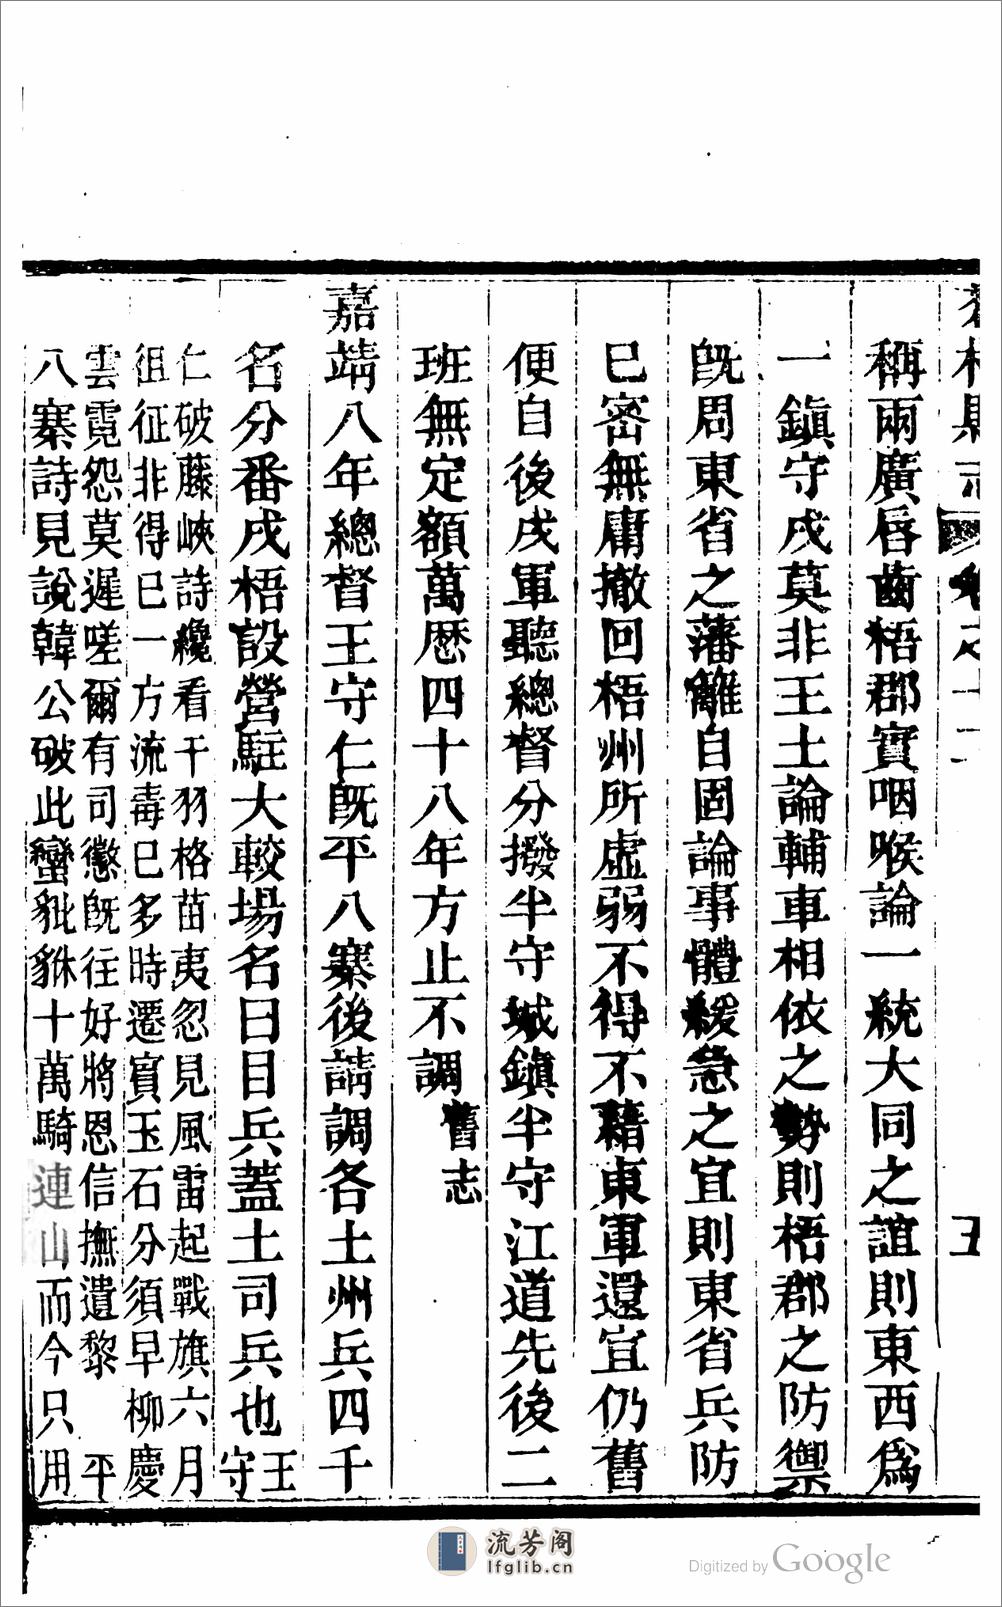 梧縣志
卷之十二
五
稱兩廣唇齒梧郡實咽喉論一統大同之誼則東西爲
一鎮守戍莫非王土論輔車相依之勢則梧郡之防禦
旣周東省之藩籬自固論事體緩急之宜則東省兵防
已密無庸撤回梧州所虛弱不得不藉東軍還宜仍舊
便自後戍軍聽總督分撥半守城鎮半守江道先後二
班無定額萬厯四十八年方止不調舊志
嘉靖八年總督王守仁旣平八寨後請調各土州兵四千
名分番戍梧設營駐大較場名曰目兵蓋土司兵也王守
仁破藤峽詩纔看干羽格苗夷忽見風雷起戰旗六月
徂征非得已一方流毒已多時遷賓玉石分須早柳慶
雲霓怨莫遲嗟爾有司懲旣往好將恩信撫遺黎 平
八寨詩見說韓公破此蠻貔貅十萬騎連山而今只用
流芳阁
lfglib.cn
Digitized by Google